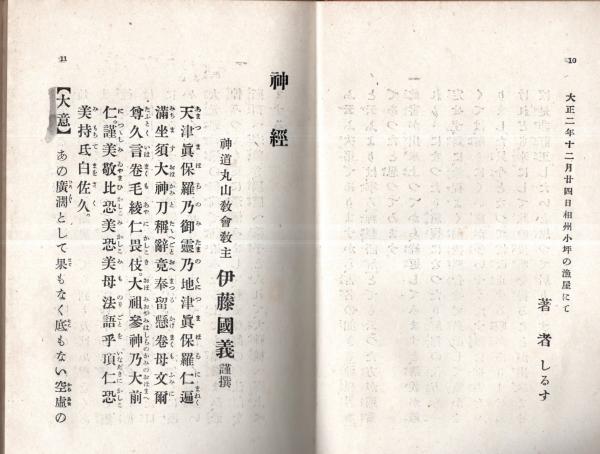 10
大正二年十二月廿四日相州小坪の漁屋にて
著者しるす
11
神經
神道丸山敎會敎主 伊藤國義 謹撰
天津眞保羅乃御靈乃地津眞保羅仁遍
滿坐須大神刀稱辭竟奉留懸卷母文爾
尊久言卷毛綾仁畏伎。大祖參神乃大前
仁。謹美敬比恐美恐美母法語乎項仁恐
美持氐白佐久。
【大意】 あの廣濶として果もなく底もない空虛の